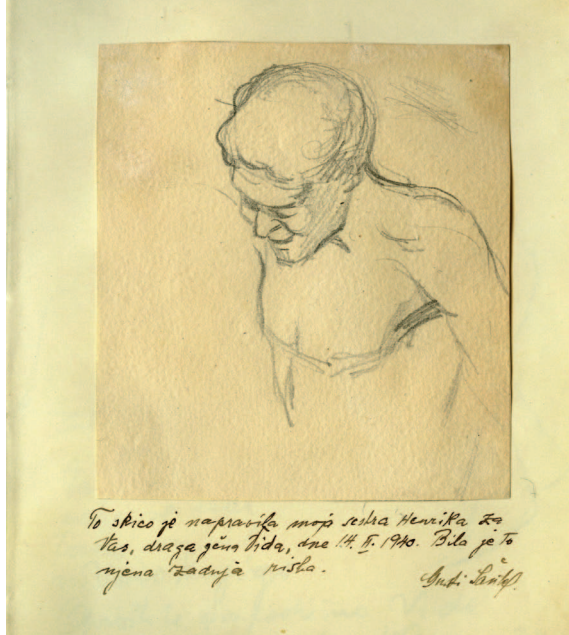 To skico je napravila moja sestra Henrika za
Vas, draga gđna Vida, dne 14. II. 1940. Bila je to
njena zadnja risba.
Gusti